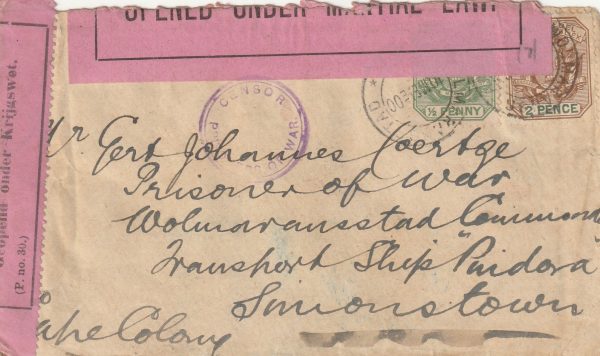 OPENED UNDER MARTIAL LAW.
Geopend onder Krijgswet.
(P. no. 30.)
CENSOR
OF WAR
½ PENNY
2 PENCE
Mr. Gert Johannes Coertge
Prisoner of War
Wolmaransstad Commando
Transport Ship "Pindora"
Simonstown
Cape Colony